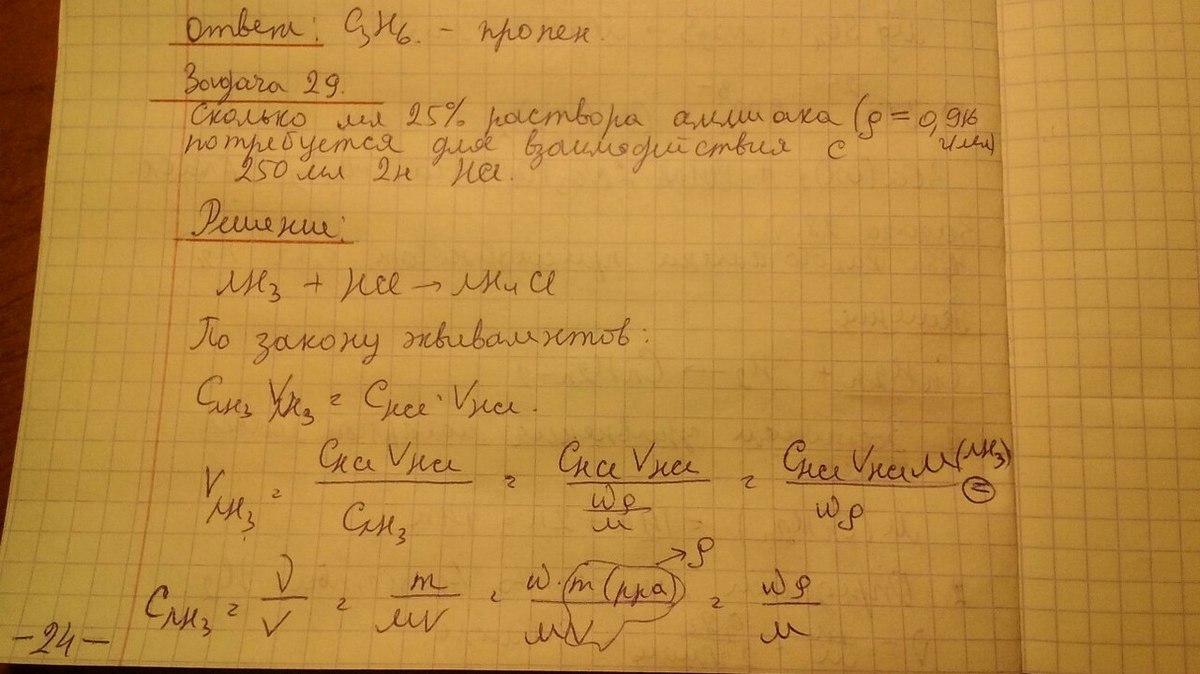 Ответ: C₃H₆. – пропен.
Задача 29.
Сколько мл 25% раствора аммиака (ρ = 0,916 г/мл)
потребуется для взаимодействия с
250 мл 2н HCl.
Решение:
NH₃ + HCl → NH₄Cl
По закону эквивалентов:
C_NH₃ V_NH₃ = C_HCl · V_HCl.
V_NH₃ = C_HCl V_HCl / C_NH₃ = C_HCl V_HCl / (wρ / M) = C_HCl V_HCl M(NH₃) / wρ =
C_NH₃ = ν / V = m / MV = w · m (рра) / MV = wρ / M → ρ
– 24 –